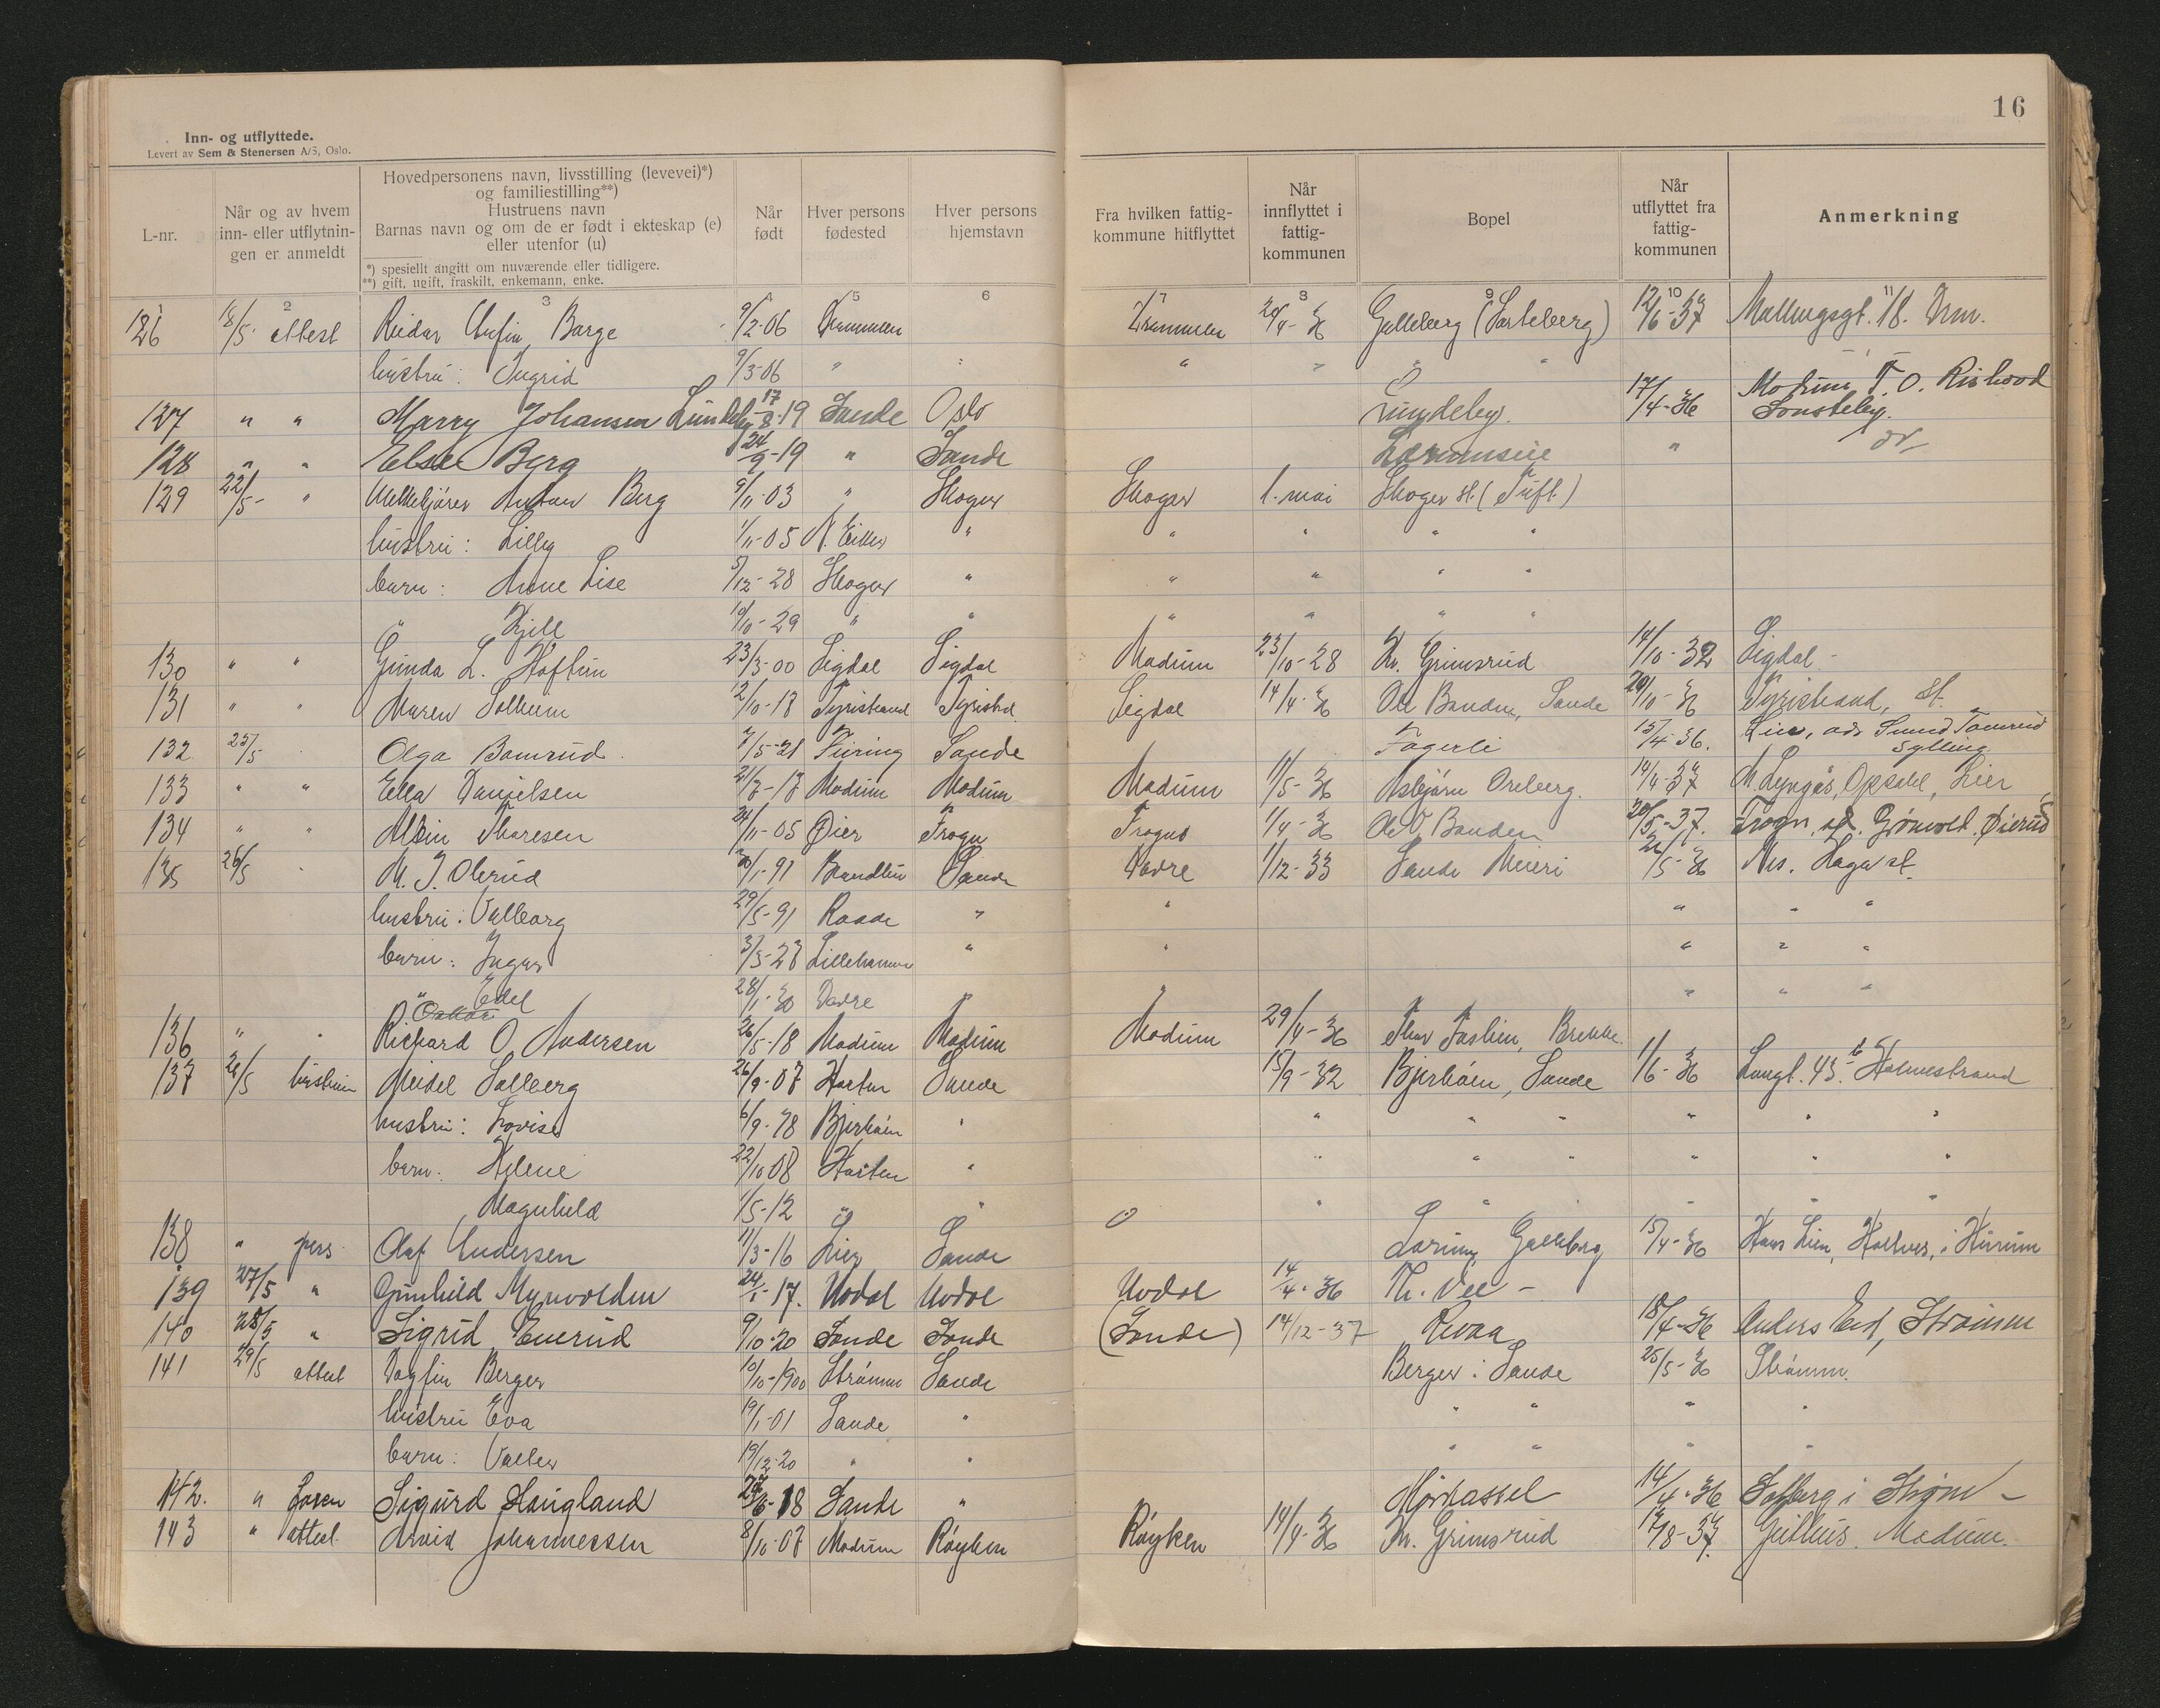 16
Inn- og utflyttede.
Levert av Sem & Stenersen A/S, Oslo.
L-nr.
Når og av hvem inn- eller utflytnin-gen er anmeldt
Hovedpersonens navn, livsstilling (levevei)*) og familiestilling**)
Hustruens navn
Barnas navn og om de er født i ekteskap (e) eller utenfor (u)
*) spesielt angitt om nuværende eller tidligere.
**) gift, ugift, fraskilt, enkemann, enke.
Når født
Hver persons fødested
Hver persons hjemstavn
Fra hvilken fattig-kommune hitflyttet
Når innflyttet i fattig-kommunen
Bopel
Når utflyttet fra fattig-kommunen
Anmerkning
2 3 5 6 7 8 9 10 11
126 18/5 attest Reidar Borge 9/2-06 Drammen Drammen 20/4-36 Galleberg 12/6-37 18. Drm.
hustru: Ingrid 9/3-06 " " " "
127 " " Marry Johansen Lundeby 17/8-19 Sande Oslo Lundeby. 17/4-36 Modum, T. O. Rishovd Sønsteby.
128 " " Else Berg 24/9-19 " Sande "
129 22/5- " Anton Berg 9/11-03 " Skoger Skoger 1. mai Skoger st. (Tuft)
hustru: Lilly 1/11-05 N. Eiker " " " " "
barn: Anne Lise 5/12-28 Skoger " " " " "
" Kjell 10/10-29 " " " " " "
130 " " Gunda L. Haftun 23/3-00 Sigdal Sigdal Modum 23/10-28 Kr. Grimsrud 14/10-32 Sigdal -
131 " " Maren Solheim 12/10-18 Tyristrand Tyristrd. Sigdal 14/4-36 Ole Banden, Sande 20/10-36 Tyristrand, st.
132 25/5 Olga Bamrud 7/5-21 Sande Fagerli 15/4-36. Lier, adr Tamrud Sylling
133 " " Ella Danielsen Modum Modum Modum 11/5-36 Asbjørn Oreberg. 14/4-37 M. Lyngås, Opsahl, Lier
134 " " Thoresen 24/11-05 Øier Frogn Frogn 1/4-36 Ole O. Banden 20/5-37. Frogn, Grønvold, Øierud
135 26/5 " M. J. Olerud /1-91 Sande Dovre 1/12-33 Sande Meieri /5-36 Nes. Haga st.
hustru: Valborg 29/5-91 Raade " " " " "
barn: Inger 3/5-23 Lillehammer " " " " "
" Edel 28/1-30 Dovre " " " " "
136 " " Richard O. Andersen 26/5-18 Modum Modum Modum 29/4-36 Thor Foslien, Brekke.
137 /5 hustruen Meidel Solberg 26/9-07 Sande 15/9-32 Bjerkøen, Sande 1/6-36 Langt. 43. Holmestrand
hustru: Lovise 6/9-78 Bjerkøen " " " " " " "
barn: Helene 22/10 08 " " " " " " "
Magnhild 1/5-12 " " " " " "
138 " pers. Olaf Andersen 11/3-16 Lier Sande Galleberg 15/4-36 Hans Lien, i Hurum
139 27/5 " Gunhild Myrvolden 24/1-17. Uvdal Uvdal Uvdal 14/4-36 Th. Vee -
140 28/5 " Sigrid Enerud 9/10-20 Sande Sande (Sande) 14/12-37 Revaa 18/4-36 Anders Eid, Strømm
141 29/5 attest Dagfin Berger 10/10-1900 Strømm Sande Berger i Sande 25/5-36 Strømm.
hustru Eva 19/1-01 Sande " " " " "
barn: 19/12-20 " " " " " "
142. " Sigurd Haugland /6-18 Sande " Mørkassel 14/4-36 Solberg i Strøm -
143 " attest Arvid Johannessen 8/10-07 Modum Røyken Røyken 14/4-36 Kr. Grimsrud /8-37. Geithus. Modum.